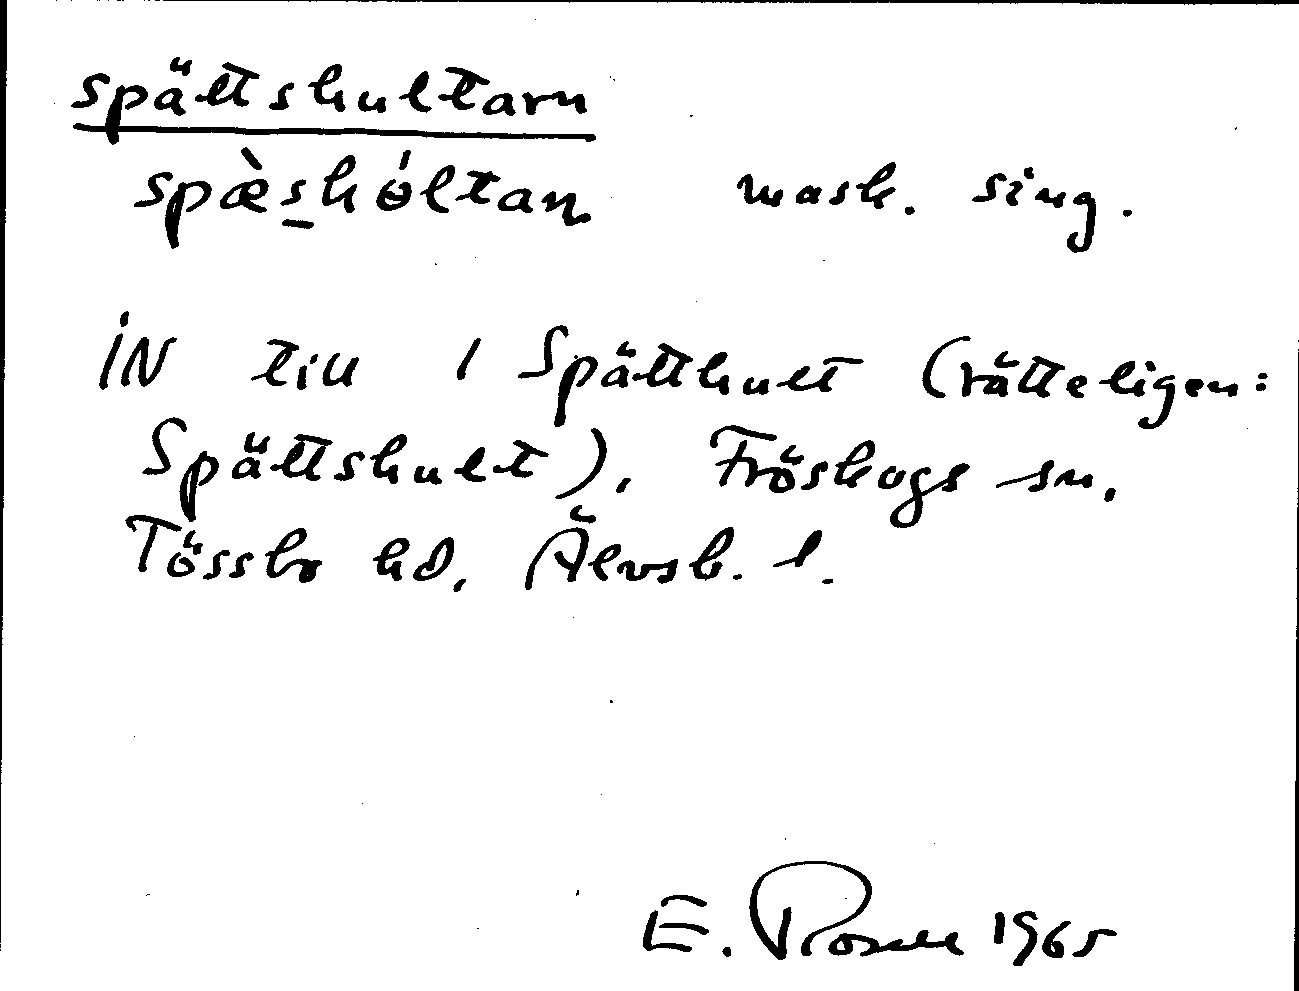 spättshultarn
spæ̀shóltan mask. sing.
IN till 1 Spätthult (rätteligen:
Spättshult), Fröskogs sn.
Tössbo hd, Älvsb. l.
E. Rosell 1965